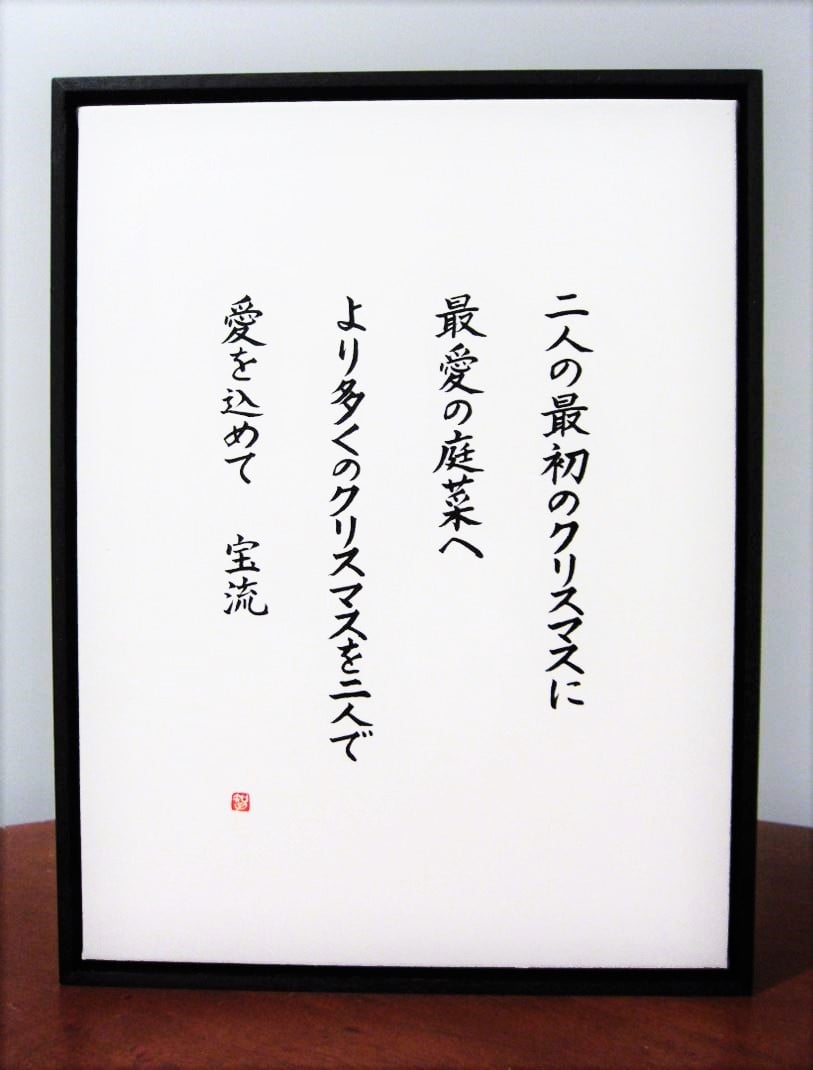 二人の最初のクリスマスに
最愛の庭菜へ
より多くのクリスマスを二人で
愛を込めて　宝流